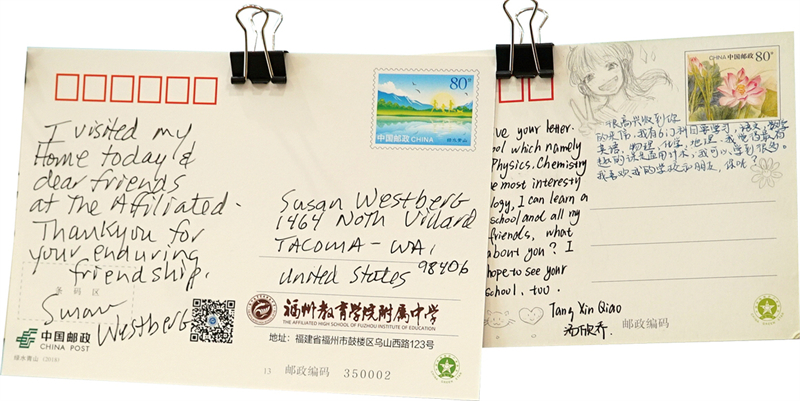 80分
中国邮政 CHINA
绿水青山
I visited my
Home today &
dear friends
at The Affiliated.
Thank you for
your enduring
friendship.
Susan
Westberg
Susan Westberg
1464 Noth Villard
TACOMA - WA,
98406
United States
条码区
中国邮政
CHINA POST
绿水青山 (2018)
福州教育学院附属中学
THE AFFILIATED HIGH SCHOOL OF FUZHOU INSTITUTE OF EDUCATION
地址：福建省福州市鼓楼区乌山西路123号
13 邮政编码 350002
CHINA 中国邮政 80分
很高兴收到你
的来信，我有6门科目要学习，语文，数学
英语，物理，化学，地理，我觉得最有
趣的课是应用技术，我可以学到很多。
我喜欢我的学校和朋友，你呢？
ve your letter.
ool which namely
Physics, Chemistry
e most interesty
logy, I can learn a
school and all my
friends, what
about you? I
hope to see your
school, too.
Tang Xin Qiao
汤欣乔
邮政编码